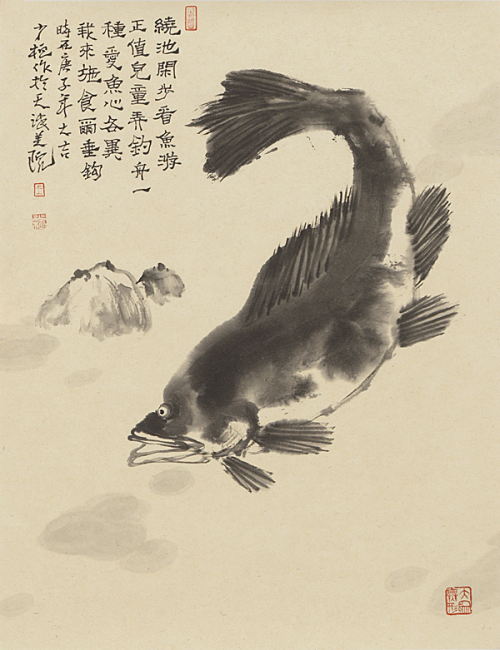 繞池閑步看魚游
正值兒童弄釣舟一
種愛魚心各異
我來施食爾垂鈎
時在庚子年之吉
少作於天美院